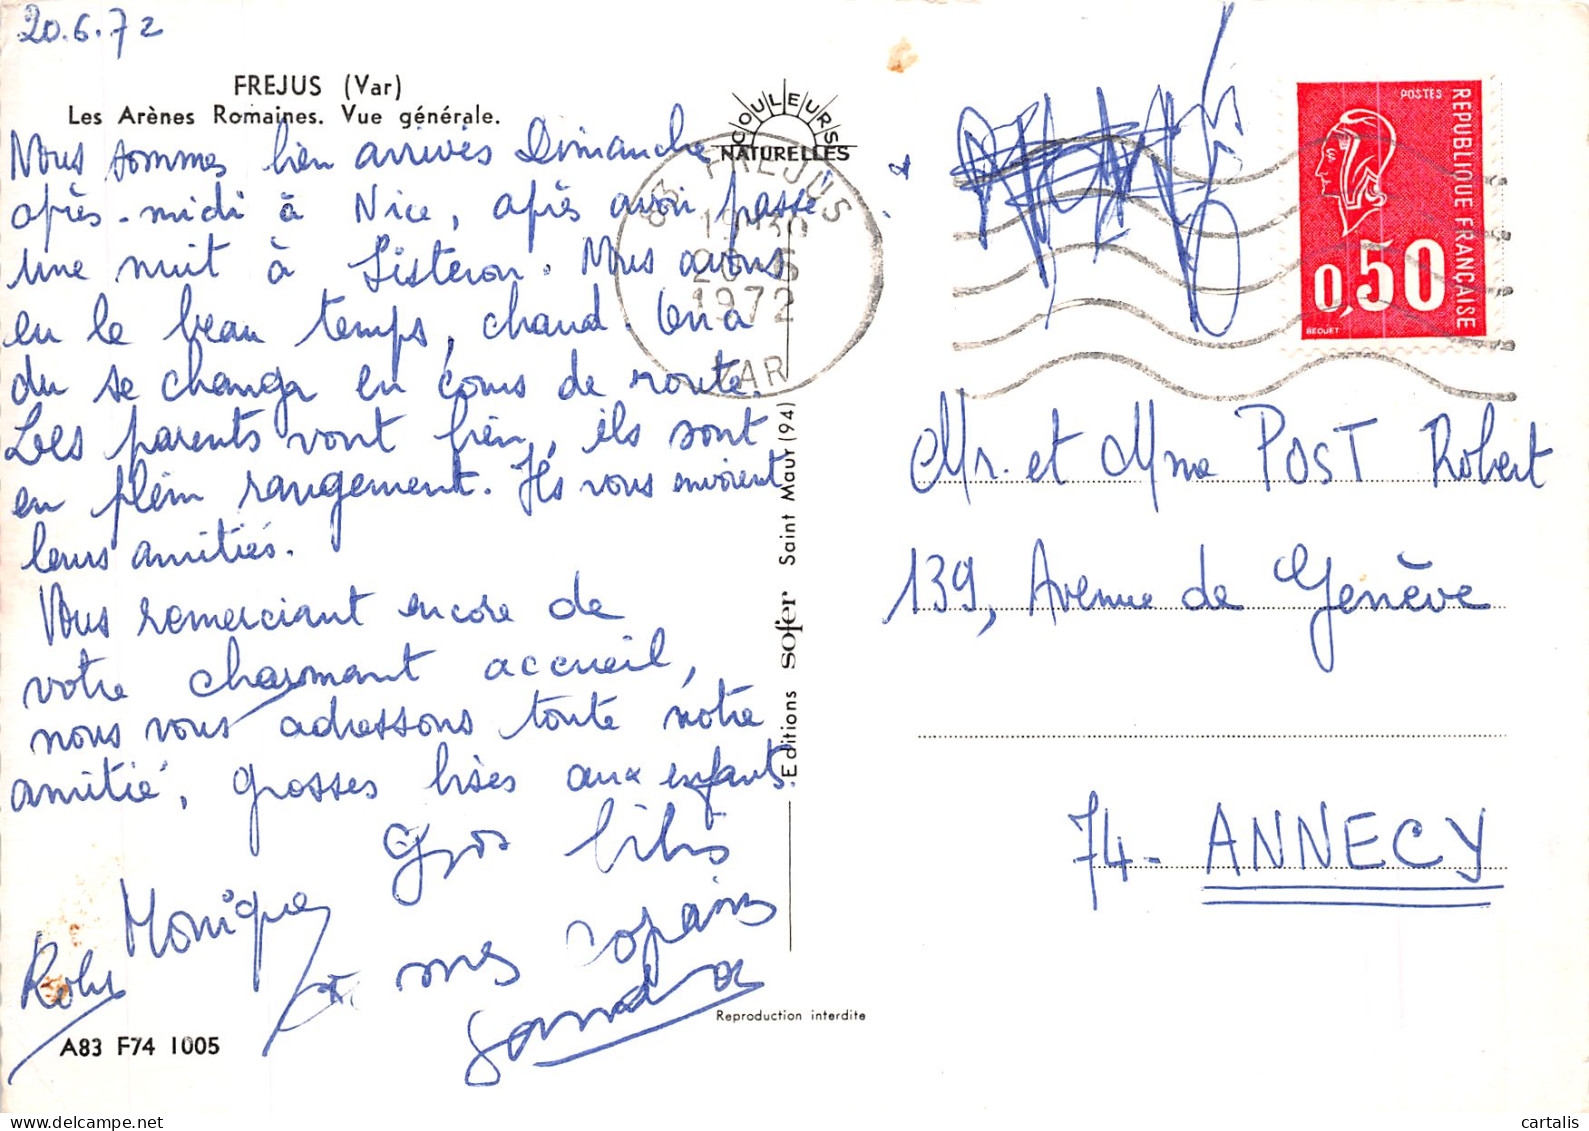 20.6.72
FREJUS (Var)
Les Arènes Romaines. Vue générale.
Nous sommes bien arrivés Dimanche
après-midi à Nice, après avoir passé
une nuit à Sisteron. Nous avons
eu le beau temps, chaud. On a
du se changer en cours de route.
Les parents vont bien, ils sont
en plein rangement. Ils vous envoient
leurs amitiés.
Vous remerciant encore de
votre charmant accueil,
nous vous adressons toute notre
amitié, grosses bises aux enfants.
Gros bibis
Monique
à mes copains
Robi
Sandra
A83 F74 1005
COULEURS
NATURELLES
83 FREJUS
19H30
20-6
1972
VAR
Editions sofer Saint Maur (94)
Reproduction interdite
POSTES
REPUBLIQUE FRANÇAISE
0,50
BEQUET
Mr. et Mme POST Robert
139, Avenue de Genève
74 - ANNECY
cartalis